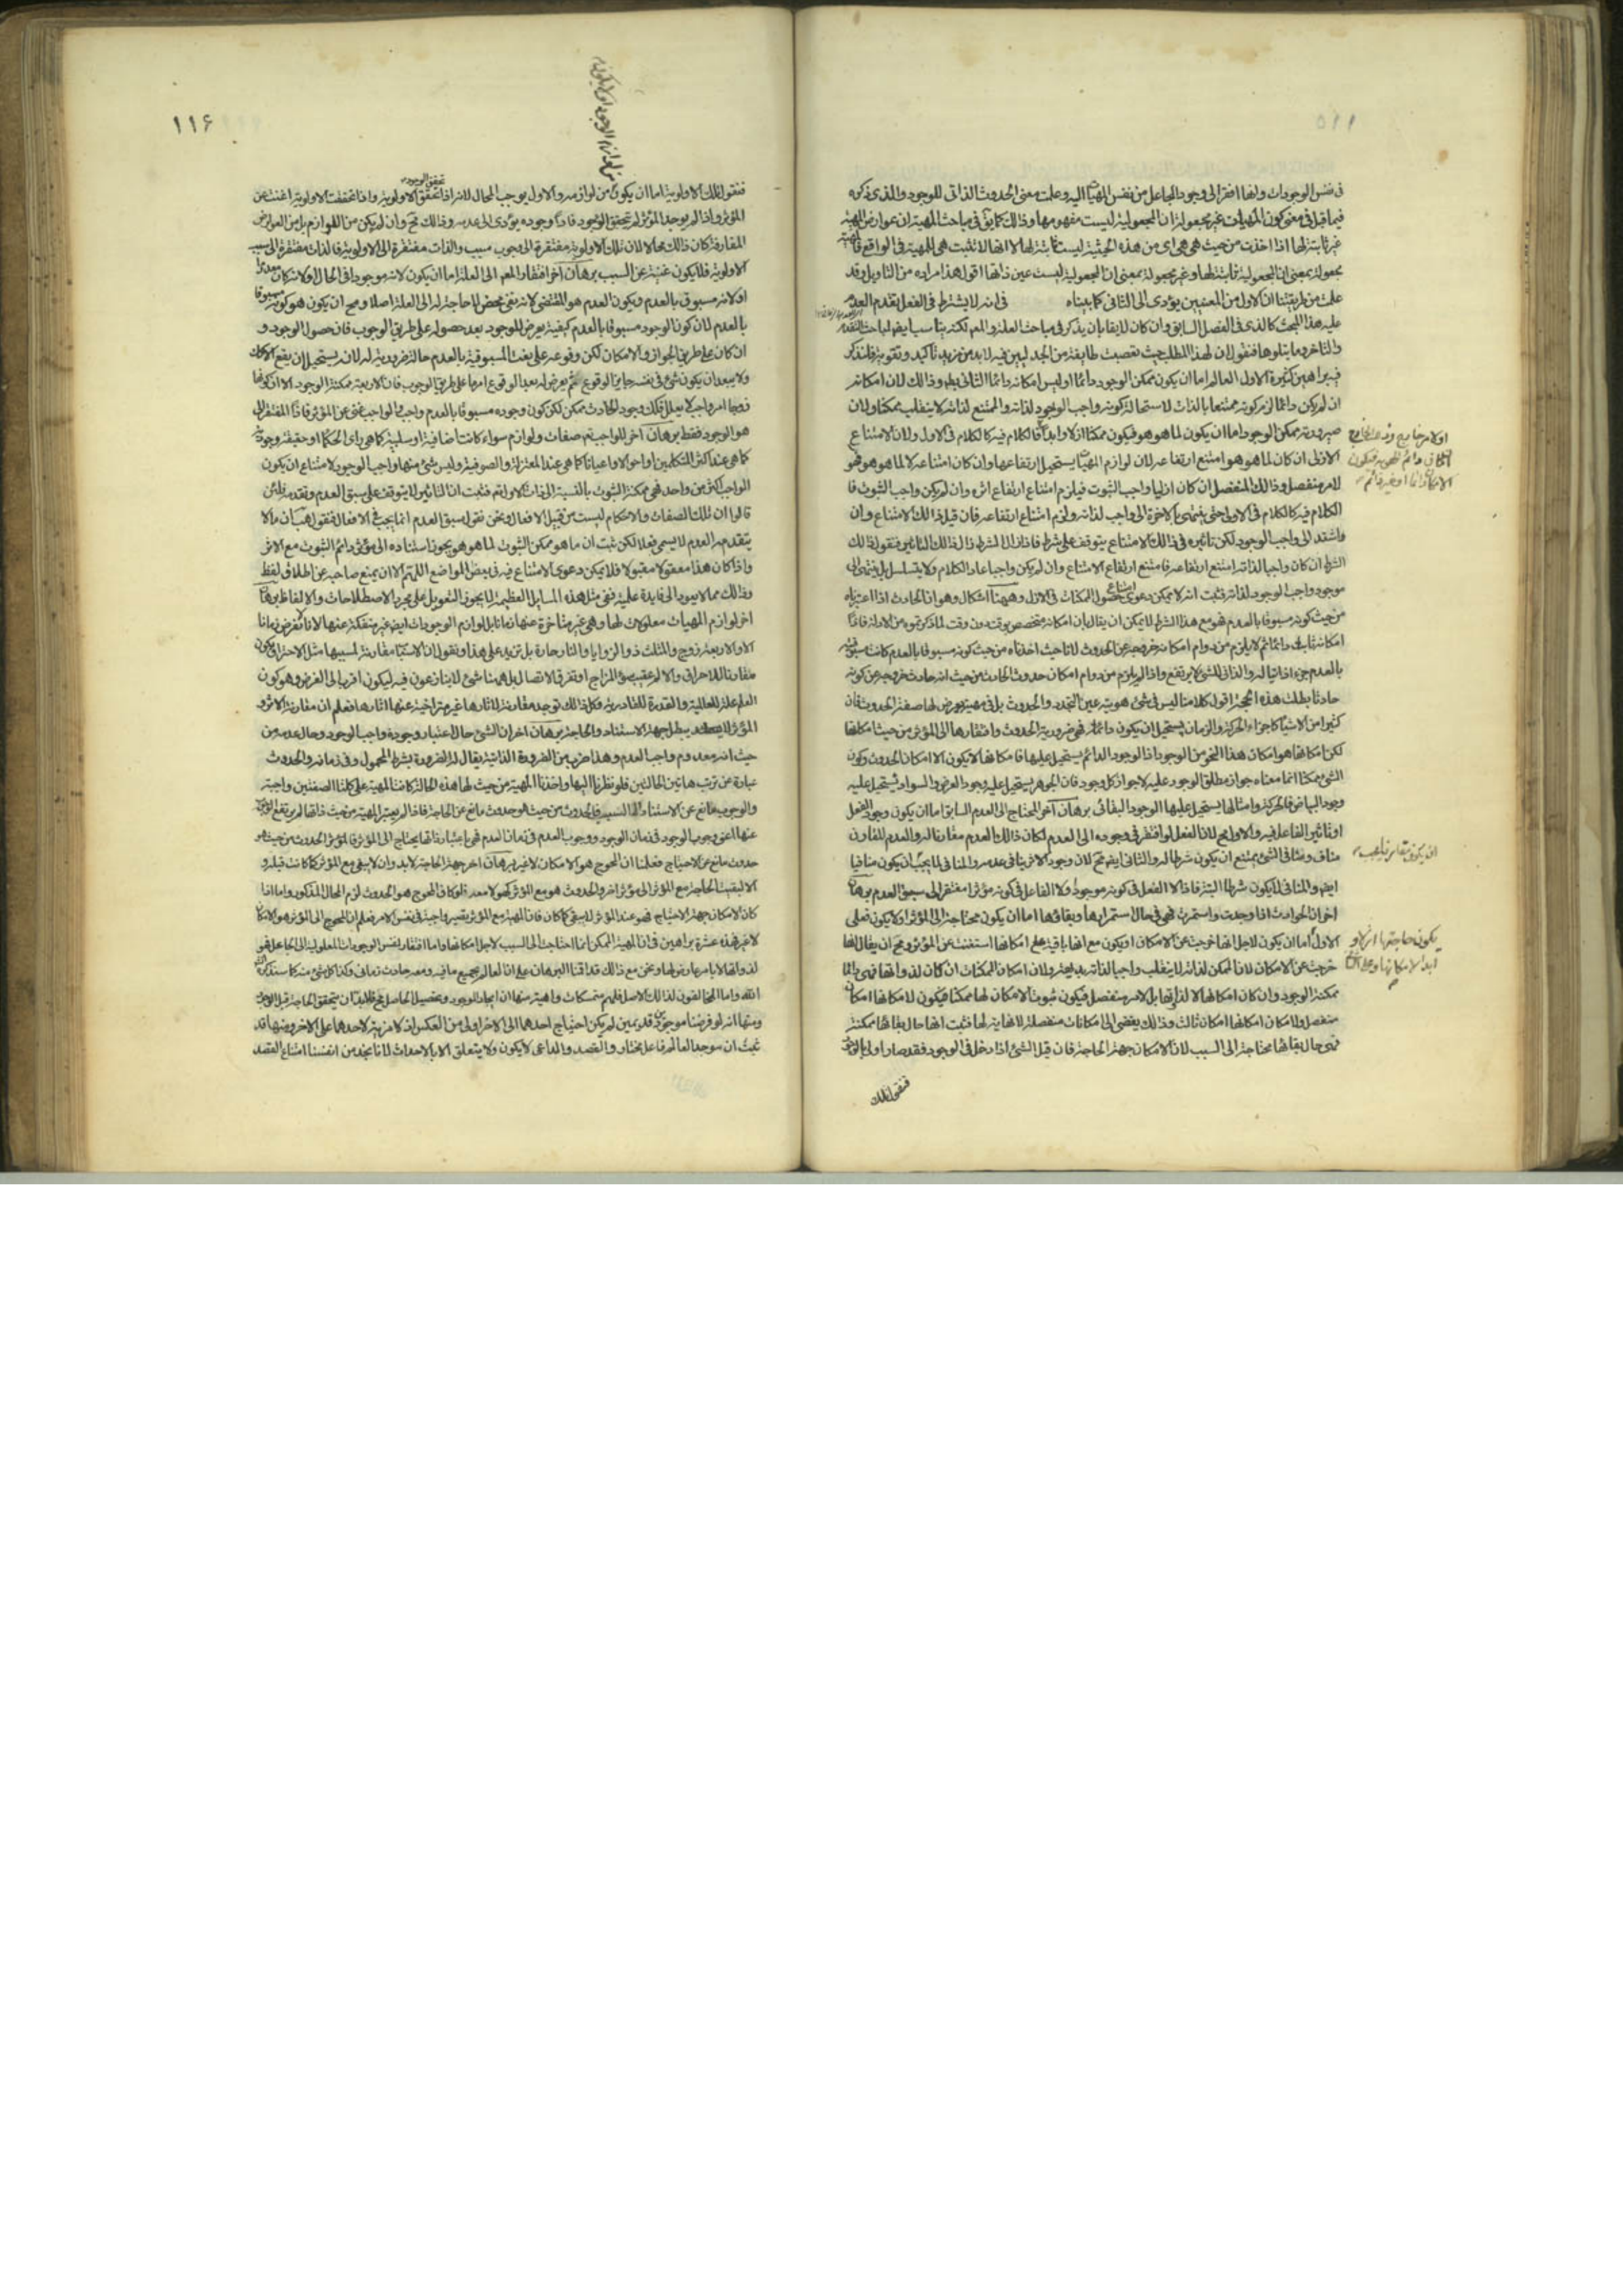 فى نفس الوجودات ولها افتقر الى وجود الجاعل من نفس المهيات اليه وعلمت معنى الحدوث الذاتى للوجود والذى ذكره
فيما قبل فى معنى كون المهيات غير مجعولة ان المجعولية ليست مفهومها وذلك كما يق فى مباحث المهية ان عوارض المهية
غير ثابتة لها اذا اخذت من حيث هى هى اى من هذه الحيثية ليست ثابتة لها لا انها لا تثبت هى للمهية فى الواقع فالمهية
مجعولة بمعنى ان المجعولية ثابتة لها وغير مجعولة بمعنى ان المجعولية ليست عين ذاتها اقول هذا مراده من التاويل وقد
علمت من طريقتنا ان الاول من المعنيين يؤدى الى الثانى كما بيناه فى انه لا يشترط فى الفعل تقدم العدم
عليه هذا البحث كالذى فى الفصل السابق وان كان لايقا بان يذكر فى مباحث العلة والمعلم لكنه يناسب ايضا لمباحث التقدم
والتاخر وما يتلوها فنقول ان لهذا المطلب حيث تعصبت طايفة من الجدليين فيه لابد من مزيد تاكيد وتقوية فلنذكر
فيه براهين كثيرة الاول العالم اما ان يكون ممكن الوجود دائما او ليس امكانه دائما الثانى بط وذلك لان امكانه
ان لم يكن دائما لزم كونه ممتنعا بالذات لاستحالة كونه واجب الوجود لذاته والممتنع لذاته لا ينقلب ممكنا ولان
صيرورته ممكن الوجود اما ان يكون لما هو هو فيكون ممكنا ازلا وابدا
الازلى ان كان لما هو هو امتنع ارتفاعه لان لوازم المهيات يستحيل ارتفاعها وان كان امتناعه لا لما هو هو فهو
لامر منفصل وذلك المنفصل ان كان ازليا واجب الثبوت فيلزم امتناع ارتفاع اثره وان لم يكن واجب الثبوت فا
الكلام فيه كالكلام فى الاول حتى ينتهى بالاخرة الى واجب لذاته ولزم امتناع ارتفاعه فان قيل ذلك الامتناع وان
استند الى واجب الوجود لكن تاثيره فى ذلك الامتناع يتوقف على شرط فاذا زال الشرط زال ذلك التاثير فنقول ذلك
الشرط ان كان واجبا لذاته امتنع ارتفاعه فامتنع ارتفاع الامتناع وان لم يكن واجبا عاد الكلام ولا يتسلسل بل ينتهى الى
موجود واجب الوجود لذاته فثبت انه لا يمكن دعوى امتناع حصول الممكنات فى الازل وههنا اشكال وهو ان الحادث اذا اعتبرناه
من حيث كونه مسبوقا بالعدم فهو مع هذا الشرط لا يمكن ان يقال بان امكانه متخصص بوقت دون وقت لما ذكرتموه من الادلة فاذا
امكانه ثابت دائما ثم لا يلزم من دوام امكانه خروجه عن الحدوث لانا حيث اخذناه من حيث كونه مسبوقا بالعدم كانت مسبوقيته
بالعدم جزء ذاتيا له والذاتى للشئ لا يرتفع واذا لم يلزم من دوام امكان حدوث الحادث من حيث انه حادث خروجه عن كونه
حادثا بطلت هذه الحجة اقول كلامنا ليس فى شئ هويته عين التجدد والحدوث بل فى مهية يعرض لها صفة الحدوث فان
كثيرا من الاشياء كاجزاء الحركة والزمان يستحيل ان يكون دائما فهى ضرورية الحدوث وافتقارها الى المؤثر من حيث امكانها
لكن امكانها هو امكان هذا النحو من الوجود اذ الوجود الدائم يستحيل عليها فامكانها لا يكون الا امكان الحدوث وكون
الشئ ممكنا انما معناه جواز مطلق الوجود عليه لا جواز كل وجود فان الجوهر يستحيل عليه وجود العرض والسواد يستحيل عليه
وجود البياض فالحركة وامثالها يستحيل عليها الوجود البقائى برهان اخر المحتاج الى العدم السابق اما ان يكون وجود الفعل
او تاثير الفاعل فيه والاول مح لان الفعل لو افتقر فى وجوده الى العدم لكان ذلك العدم مقارنا له والعدم المقارن
مناف ومنافى الشئ يمتنع ان يكون شرطا له والثانى ايضا مح لان وجود الاثر ينافى عدمه والمنافى لما يجب ان يكون منافيا
ايضا والمنافى لا يكون شرطا البتة فاذا لا الفعل فى كونه موجودا ولا الفاعل فى كونه مؤثرا مفتقر الى سبق العدم برهان
اخر ان الحوادث اذا وجدت واستمرت فهى فى حال استمرارها وبقاؤها اما ان يكون محتاجة الى المؤثر او لا يكون فعلى
الاول اما ان يكون لاجل انها خرجت عن الامكان او يكون مع انها باقية على امكانها استغنت عن المؤثر ومح ان يقال انها
خرجت عن الامكان لان الممكن لذاته لا ينقلب واجبا لذاته بديهة ولان امكان الممكنات ان كان لذواتها فهى دائما
ممكنة الوجود وان كان امكانها لا لذاتها بل لامر منفصل فيكون ثبوت الامكان لها ممكنا فيكون لامكانها امكان
منفصل ولامكان امكانها امكان ثالث وذلك يفضى الى امكانات منفصلة لا نهاية لها فثبت انها حال بقائها ممكنة
فهى حال بقائها محتاجة الى السبب لان الامكان جهة الحاجة فان قيل الشئ اذا دخل فى الوجود فقد صار اولى بالوجود
فنقول تلك
اولامر خارج
ان يكون مقارنا يجب
يكون حاجتها ازلا و
ابدا لامكانها
١١۶
فنقول تلك الاولوية اما ان يكون من لوازمه والاول يوجب المحال لانه اذا تحقق الاولوية واذا تحققت الاولوية اغنت عن
تحقق الوجود
المؤثر واذا لم يوجد المؤثر لم يتحقق الوجود فاذا وجوده يؤدى الى عدمه وذلك مح وان لم يكن من اللوازم بل من العوارض
المفارقة كان ذلك محالا لان تلك الاولوية مفتقرة الى وجوب سبب والذات مفتقرة الى الاولوية فالذات مفتقرة الى سبب
الاولوية فلا يكون غنية عن السبب برهان اخر افتقار المعلم الى العلة اما ان يكون لانه موجود فى الحال او لانه كان معدوما
او لانه مسبوق بالعدم ويكون العدم هو المقتضى لانه نفى محض لا حاجة له الى العلة اصلا ومح ان يكون هو كونه مسبوقا
بالعدم لان كون الوجود مسبوقا بالعدم كيفية يعرض للوجود بعد حصوله على طريق الوجوب فان حصول الوجود و
ان كان على طريق الجواز والامكان لكن وقوعه على نعت المسبوقية بالعدم حالة ضرورية له لان يستحيل ان يقع الا كك
ولا يبعد ان يكون شئ فى نفسه جايز الوقوع ثم يعرض له بعد الوقوع امر ما على طريق الوجوب فان الاربعة ممكنة الوجود الا ان كونها
زوجا امر واجب لا يعلل فكذلك وجود الحادث ممكن لكن كون وجوده مسبوقا بالعدم واجب والواجب غنى عن المؤثر فاذا المفتقر الى
هو الوجود فقط برهان اخر للواجب تع صفات ولوازم سواء كانت اضافية او سلبية كما هى راى الحكماء او حقيقة وجودية
كما هى عند اكثر المتكلمين او احوالا واعيانا كما هى عند المعتزلة والصوفية وليس شئ منها واجب الوجود لامتناع ان يكون
الواجب اكثر من واحد فهى ممكنة الثبوت بالنسبة الى ذات الاول تع فثبت ان التاثير لا يتوقف على سبق العدم وتقدمه فلئن
قالوا ان تلك الصفات والاحكام ليست من قبيل الافعال ونحن نقول سبق العدم انما يجب فى الافعال فنقول هب ان ما لا
يتقدمه العدم لا يسمى فعلا لكن ثبت ان ما هو ممكن الثبوت لما هو هو يجوز استناده الى مؤثر دائم الثبوت مع الاثر
واذا كان هذا معقولا مقبولا فلا يمكن دعوى الامتناع فيه فى بعض المواضع اللهم الا ان يمتنع صاحبه عن اطلاق لفظ
وذلك مما لا يعود الى فايدة علمية ففى مثل هذه المسايل العظيمة لا يجوز التعويل على مجرد الاصطلاحات والالفاظ برهان
اخر لوازم المهيات معلولات لها وهى غير متاخرة عنها زمانا بل لوازم الوجودات ايضا غير منفكة عنها لانا لا نفرض زمانا
الا والاربعة زوج والمثلث ذو الزوايا والنار حارة بل نزيد على هذا ونقول ان الاسباب مقارنة لمسبباتها مثل الاحتراق يكون
مقارنا للاحراق والالم عقيب سوء المزاج او تفرق الاتصال بل ههنا شئ لا يتنازعون فيه ليكون اقرب الى الغرض وهو كون
العلم علة للعالمية والقدرة للقادرية فكل ذلك توجد مقارنة لاثارها غير متراخية عنها اثارها فعلم ان مقارنة الاثر و
المؤثر لا يبطل جهة الاستناد والحاجة برهان اخر ان الشئ حال اعتبار وجوده واجب الوجود وحال عدمه من
حيث انه معدوم واجب العدم وهذا ضرب من الضرورة الذاتية يقال له الضرورة بشرط المحمول وفى زمانه والحدوث
عبارة عن ترتب هاتين الحالتين فلو نظرنا اليها واخذنا المهية من حيث لها هذه الحالة كانت المهية على كلتا الصفتين واجبة
والوجوب مانع عن الاستناد الى السبب فالحدوث من حيث هو حدوث مانع عن الحاجة فاذا لم يعتبر المهية من حيث ذاتها لم يرتفع الوجوب
عنها اعنى وجوب الوجود فى زمان الوجود ووجوب العدم فى زمان العدم فهى باعتبار ذاتها يحتاج الى المؤثر فالمؤثر الحدوث من حيث هو
حدوث مانع عن الاحتياج فعلمنا ان المحوج هو الامكان لا غير برهان اخر جهة الحاجة لابد وان لا يبقى مع المؤثر كما كانت قبله و
الا لبقيت الحاجة مع المؤثر الى مؤثر اخر والحدوث هو مع المؤثر كهو لا معه فلو كان المحوج هو الحدوث لزم المحال المذكور واما اذا
كان الامكان جهة الاحتياج فهو عند المؤثر لا يبقى كما كان فان المهية مع المؤثر يصير واجبة فى نفس الامر فعلم ان المحوج الى المؤثر هو الامكان
لا غير فهذه عشرة براهين فى ان المهية الممكن انما احتاجت الى السبب لاجل امكانها واما افتقار نفس الوجودات المعلولية الى الجاعل فهو
لذواتها لا بامر عارض لها ونحن مع ذلك قد اقمنا البرهان على ان العالم بجميع ما فيه ومعه حادث زمانى وكذا كل شئ منه كما سنذكره انشاء
الله واما المخالفون لذلك الاصل فلهم متمسكات واهية منها ان ايجاد الموجود وتحصيل الحاصل مح فلابد ان يتحقق الحاجة قبل الوجود
ومنها انه لو فرضنا موجودين قديمين لم يكن احتياج احدهما الى الاخر اولى من العكس اذ لا مزية لاحدهما على الاخر ومنها قد
ثبت ان موجد العالم فاعل مختار والقصد والداعى لا يكون ولا يتعلق الا بالاحداث لانا نجد من انفسنا امتناع القصد